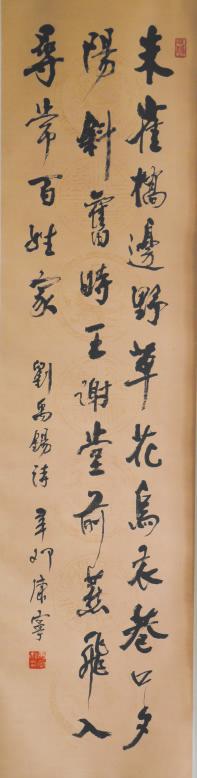 朱雀橋邊野草花烏衣巷口夕
陽斜舊時王謝堂前燕飛入
尋常百姓家
劉禹錫詩 辛卯 康寧